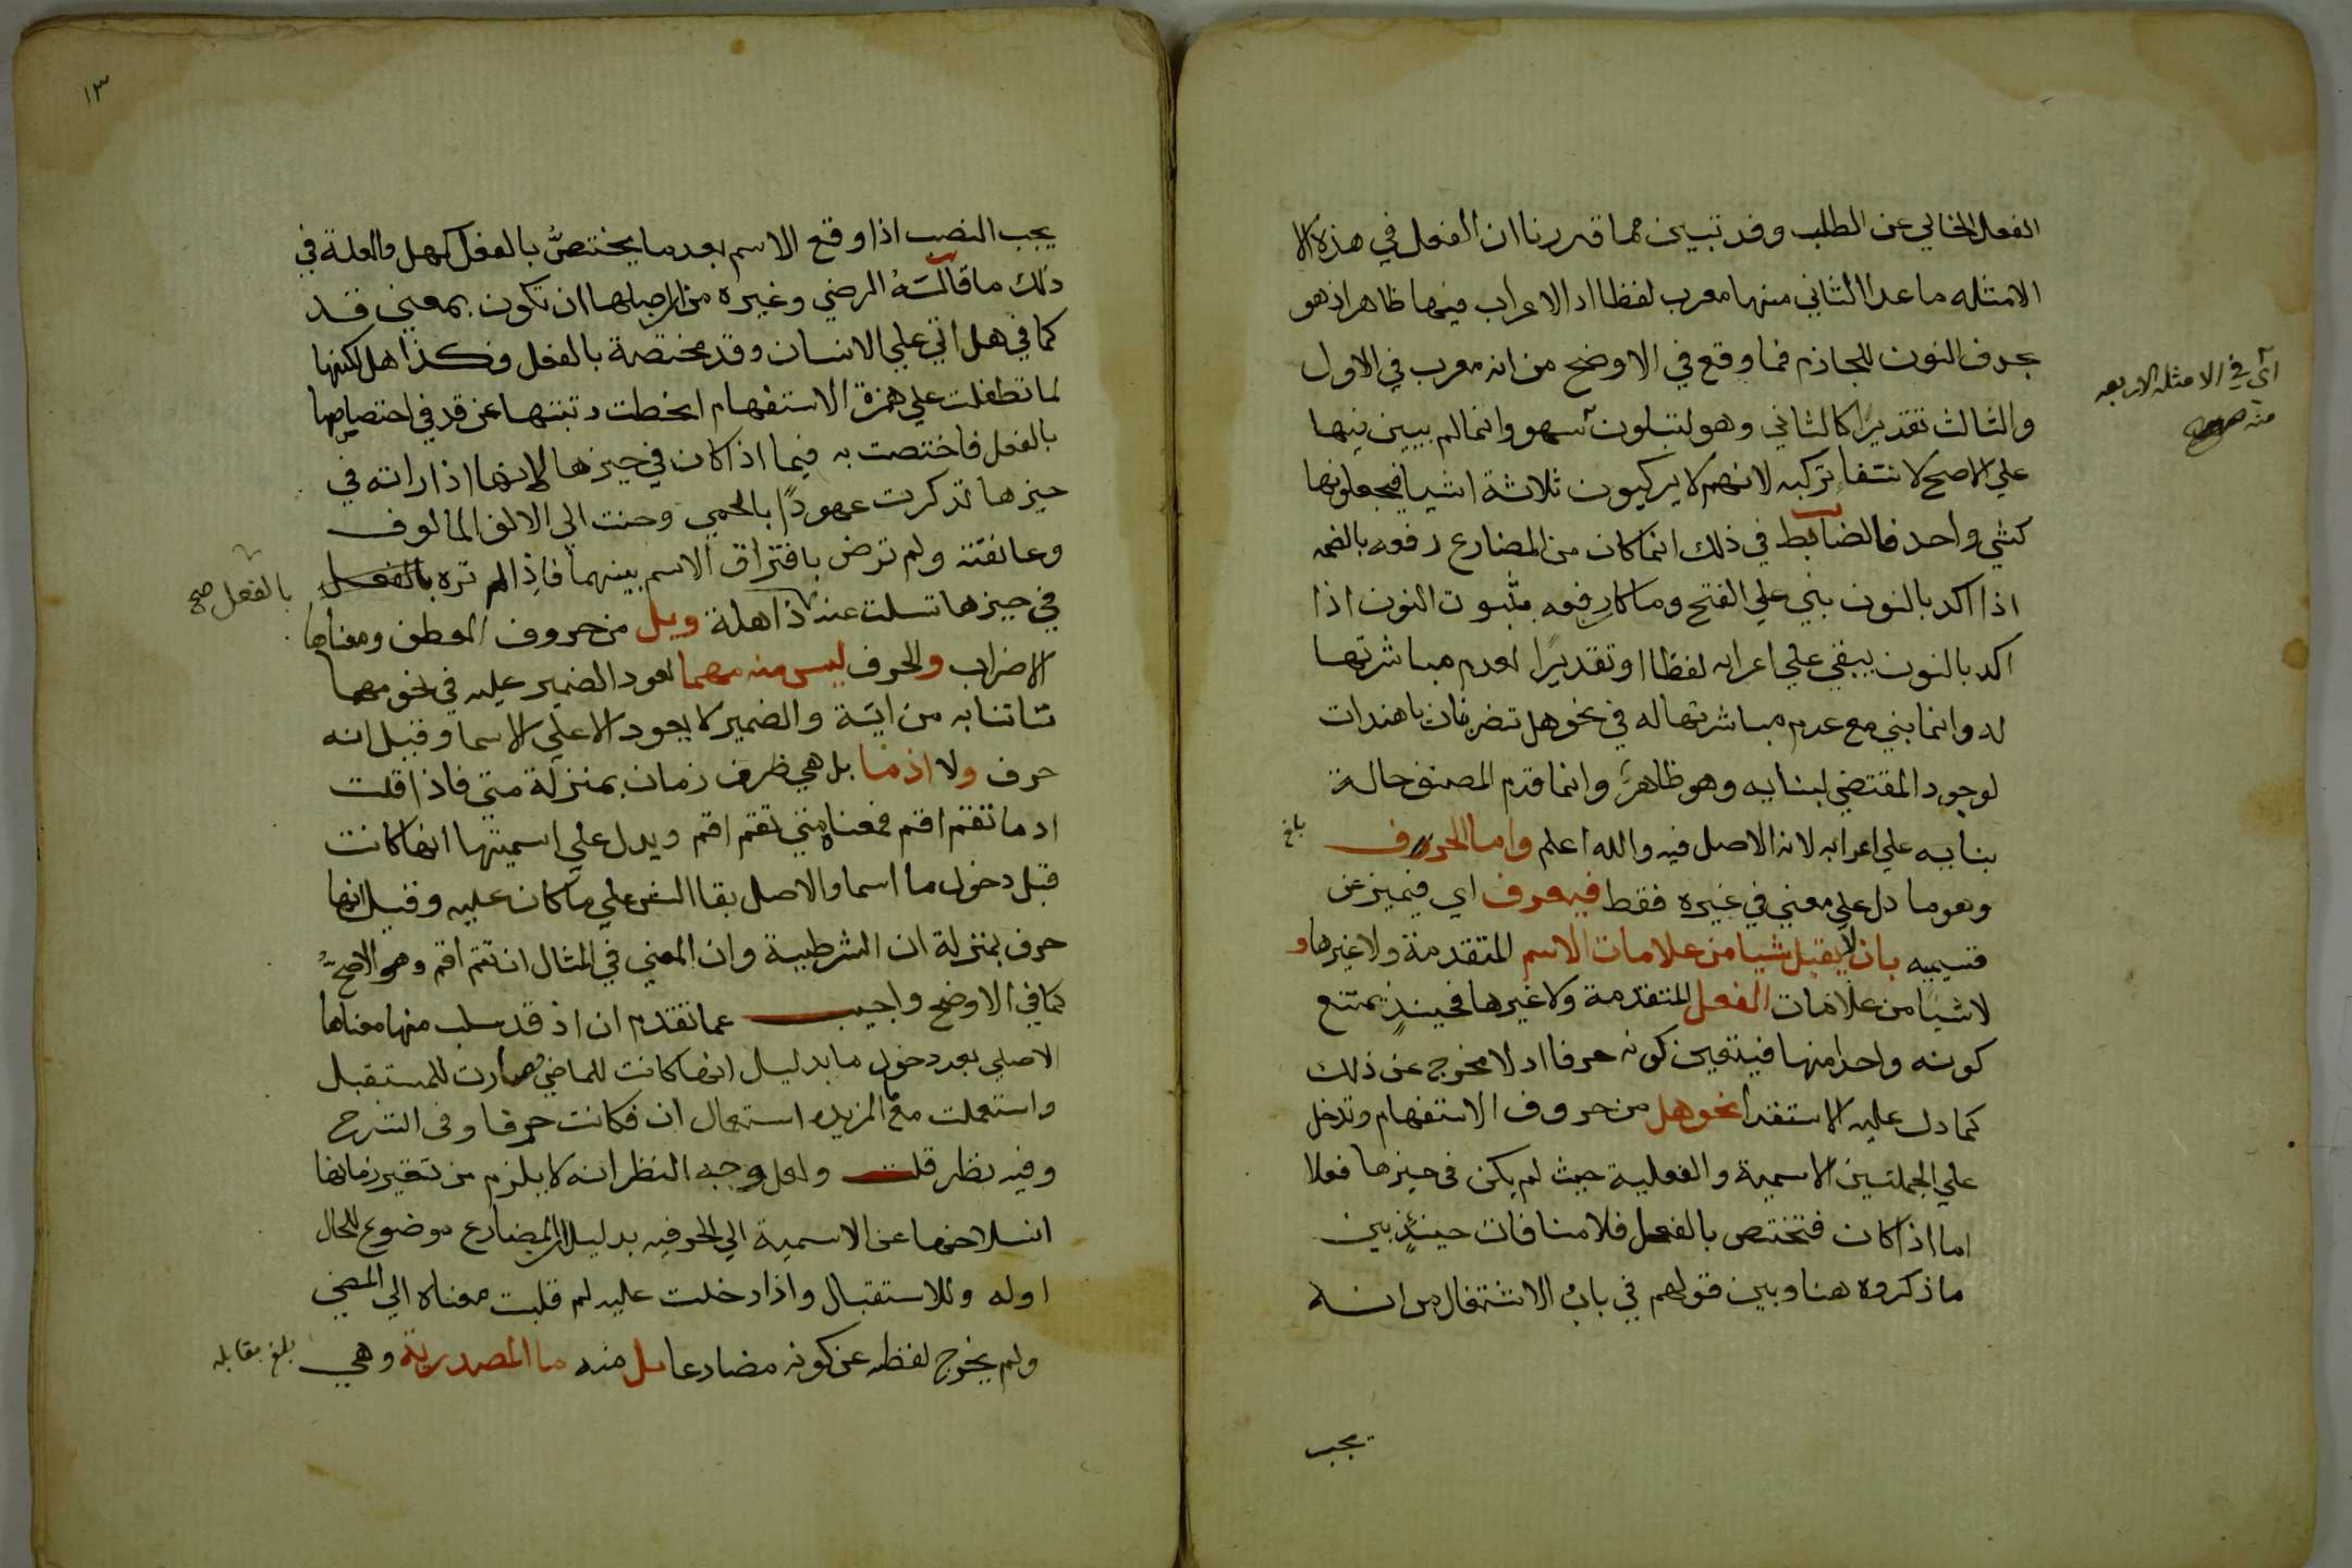 الفعل الخالي عن الطلب وقد تبين مما قررنا ان الفعل في هذه الا
الامثله ما عدا الثاني منها معرب لفظا اذ الاعراب فيها ظاهر اذ هو
بحذف النون للجازم فما وقع في الاوضح من انه معرب في الاول
والثالث تقديرا كالثاني وهو لتبلون سهو وانما لم يبين فيها
علي الاصح لانتفا تركبه لانهم لا يركبون ثلاثة اشيا فيجعلونها
كشي واحد فالضابط في ذلك انما كان من المضارع رفعه بالضمه
اذا اكد بالنون بني علي الفتح وما كان رفعه بثبوت النون اذا
اكد بالنون يبقي علي اعرابه لفظا او تقديرًا لعدم مباشرتها
له وانما بني مع عدم مباشرتها له في نحو هل تضربنان يا هندات
لوجود المقتضي لبنايه وهو ظاهر وانما قدم المصنف حالة
بنايه علي اعرابه لانه الاصل فيه والله اعلم واما الحرف
وهو ما دل علي معني في غيره فقط فيعرف اي فيتميز عن
قسيميه بان لا يقبل شيا من علامات الاسم المتقدمة ولا غيرها و
لا شيًا من علامات الفعل المتقدمة ولا غيرها فحينئذٍ يمتنع
كونه واحدا منها فيتعين كونه حرفا اذ لا مخرج عن ذلك
كما دل عليه الاستقرا نحو هل من حروف الاستفهام وتدخل
علي الجملتين الاسمية والفعلية حيث لم يكن في حيزها فعلا
اما اذا كان فتختص بالفعل فلا منافات حينئذٍ بين
ما ذكروه هنا وبين قولهم في باب الاشتغال من انه
يجب
اي في الامثله الاربعه
منه
بلغ
١٣
يجب النصب اذا وقع الاسم بعد ما يختصُّ بالفعل كهل والعلة في
ذلك ما قاله الرضي وغيره من ان اصلها ان تكون بمعني قد
كما في هل اتي علي الانسان وقد مختصة بالفعل فكذا هل لكنها
لما تطفلت علي همزة الاستفهام انحطت رتبتها عن قد في اختصاصها
بالفعل فاختصت به فيما اذا كان في حيزها لانها اذا راته في
حيزها تذكرت عهودًا بالحمي وحنت الي الالف المالوف
وعانقته ولم ترض بافتراق الاسم بينهما فاذا لم تره بالفعل
في حيزها تسلت عنه ذاهلة وبل من حروف العطف ومعناها
الاضراب والحرف ليس منه مهما لعود الضمير عليه في نحو مهما
تاتنا به من اية والضمير لا يعود الا علي الاسما وقيل انه
حرف ولا اذما بل هي ظرف زمان بمنزلة متي فاذا قلت
اذ ما تقم اقم فمعناه متي تقم اقم ويدل علي اسميتها انها كانت
قبل دخول ما اسما والاصل بقا الشي علي ما كان عليه وقيل انها
حرف بمنزلة ان الشرطية وان المعني في المثال ان تقم اقم وهو الاصحُّ
كما في الاوضح واجيب عما تقدم ان اذ قد سلب منها معناها
الاصلي بعد دخول ما بدليل انها كانت للماضي فصارت للمستقبل
واستعملت مع المزيده استعمال ان فكانت حرفا وفي الشرح
وفيه نظر قلت ولعل وجه النظر انه لا يلزم من تغير زمانها
انسلاخها عن الاسمية الي الحرفيه بدليل ان المضارع موضوع للحال
اوله وللاستقبال واذا دخلت عليه لم قلبت معناه الي المضي
ولم يخرج لفظه عن كونه مضارعا بل منه ما المصدرية وهي
بالفعل صح
بلغ مقابله